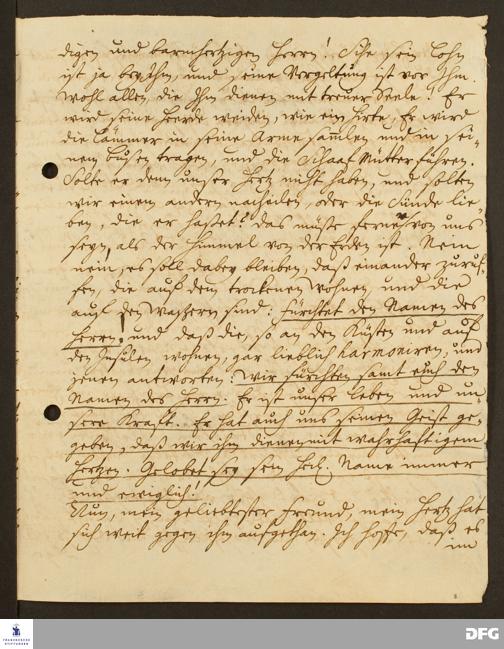 digen und barmhertzigen Herrn! Sihe sein Lohn
ist ja bey Ihm, und seine Vergeltung ist vor Ihm.
Wohl allen, die Ihm dienen mit treuer Seele! Er
wird seine Heerde weiden, wie ein Hirte, Er wird
die Lämmer in seine Arme samlen und in sei-
nem Busen tragen, und die Schaaf Mütter führen.
Solte er denn unser Hertz nicht haben, und solten
wir einem anderen nacheilen, oder die Sünde lie-
ben, die er hasset? Das müste ferne von uns
seyn, als der Himmel von der Erden ist. Nein
nein, es soll dabey bleiben, daß einander zuruf-
fen, die auf dem trockenen wohnen, und die
auf den Wassern sind: fürchtet den Namen des
Herrn! und daß die, so an den Küsten und auf
den Insulen wohnen, gar lieblich harmoniren, und
jenen antworten: wir fürchten samt euch den
Namen des Herrn. Er ist unser Leben und un-
sere Kraft. Er hat auch uns seinen Geist ge-
geben, daß wir ihm dienen mit wahrhaftigem
Hertzen. Gelobet sey sein Heil. Name immer
und ewiglich!
Nun, mein geliebtester Freund, mein Hertz hat
sich weit gegen ihm aufgethan. Ich hoffe, daß es
im
FRANCKESCHE
STIFTUNGEN
DFG